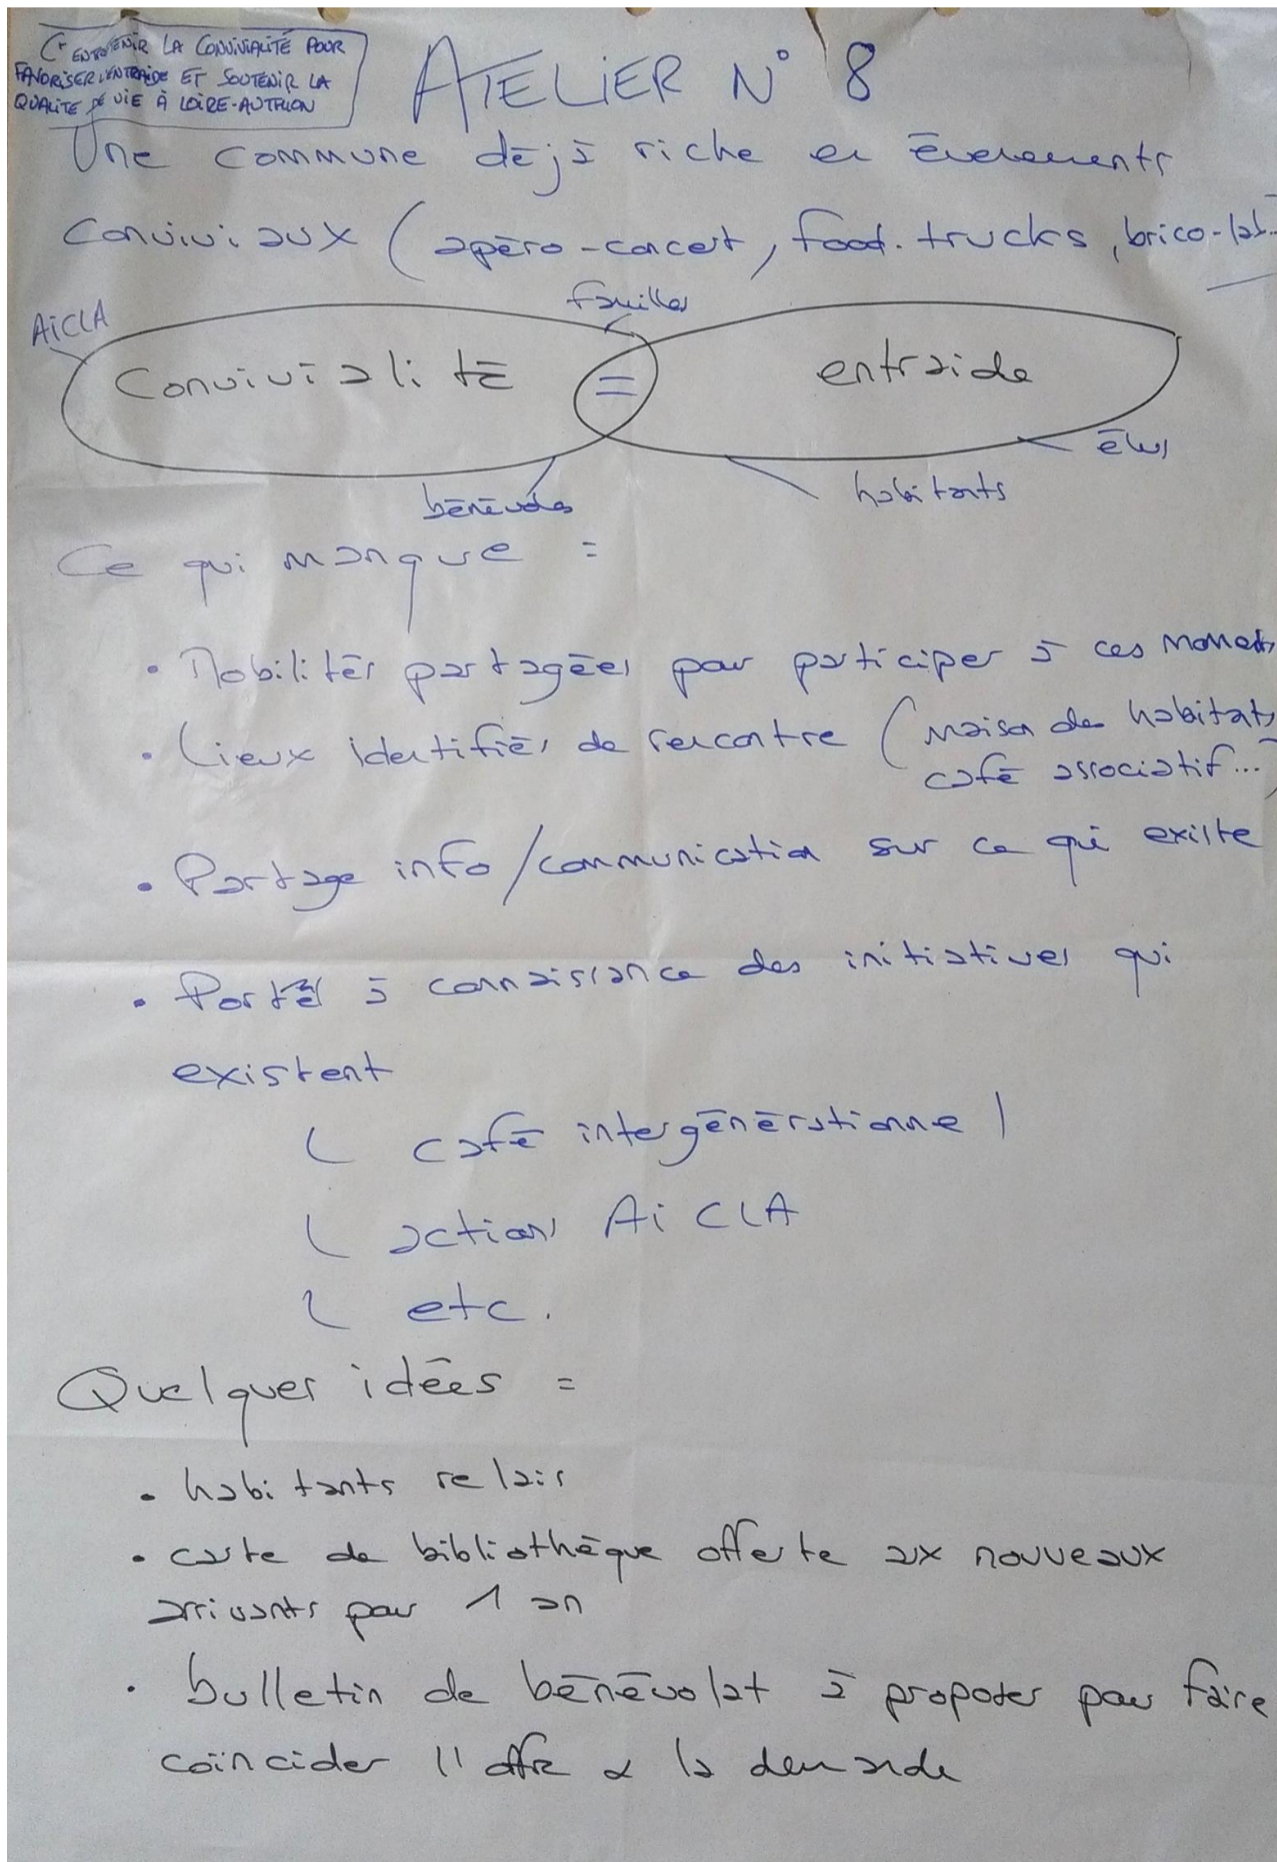 ENTRETENIR LA CONVIVIALITÉ POUR
FAVORISER L'ENTRAIDE ET SOUTENIR LA
QUALITÉ DE VIE À LOIRE-AUTHION
ATELIER N° 8
Une commune déjà riche en évènements
conviviaux (apéro-concert, food-trucks, brico-lab...
AiCLA
familles
Convivialité = entraide
élus
bénévoles
habitants
Ce qui manque =
• Mobilités partagées pour participer à ces moments
• Lieux identifiés de rencontre (maison de habitants
café associatif...)
• Partage info/communication sur ce qui existe
• Porté à connaissance des initiatives qui
existent
( café intergénérationnel
( actions AiCLA
( etc.
Quelques idées =
• habitants relais
• carte de bibliothèque offerte aux nouveaux
arrivants pour 1 an
• bulletin de bénévolat à proposer pour faire
coïncider l'offre & la demande